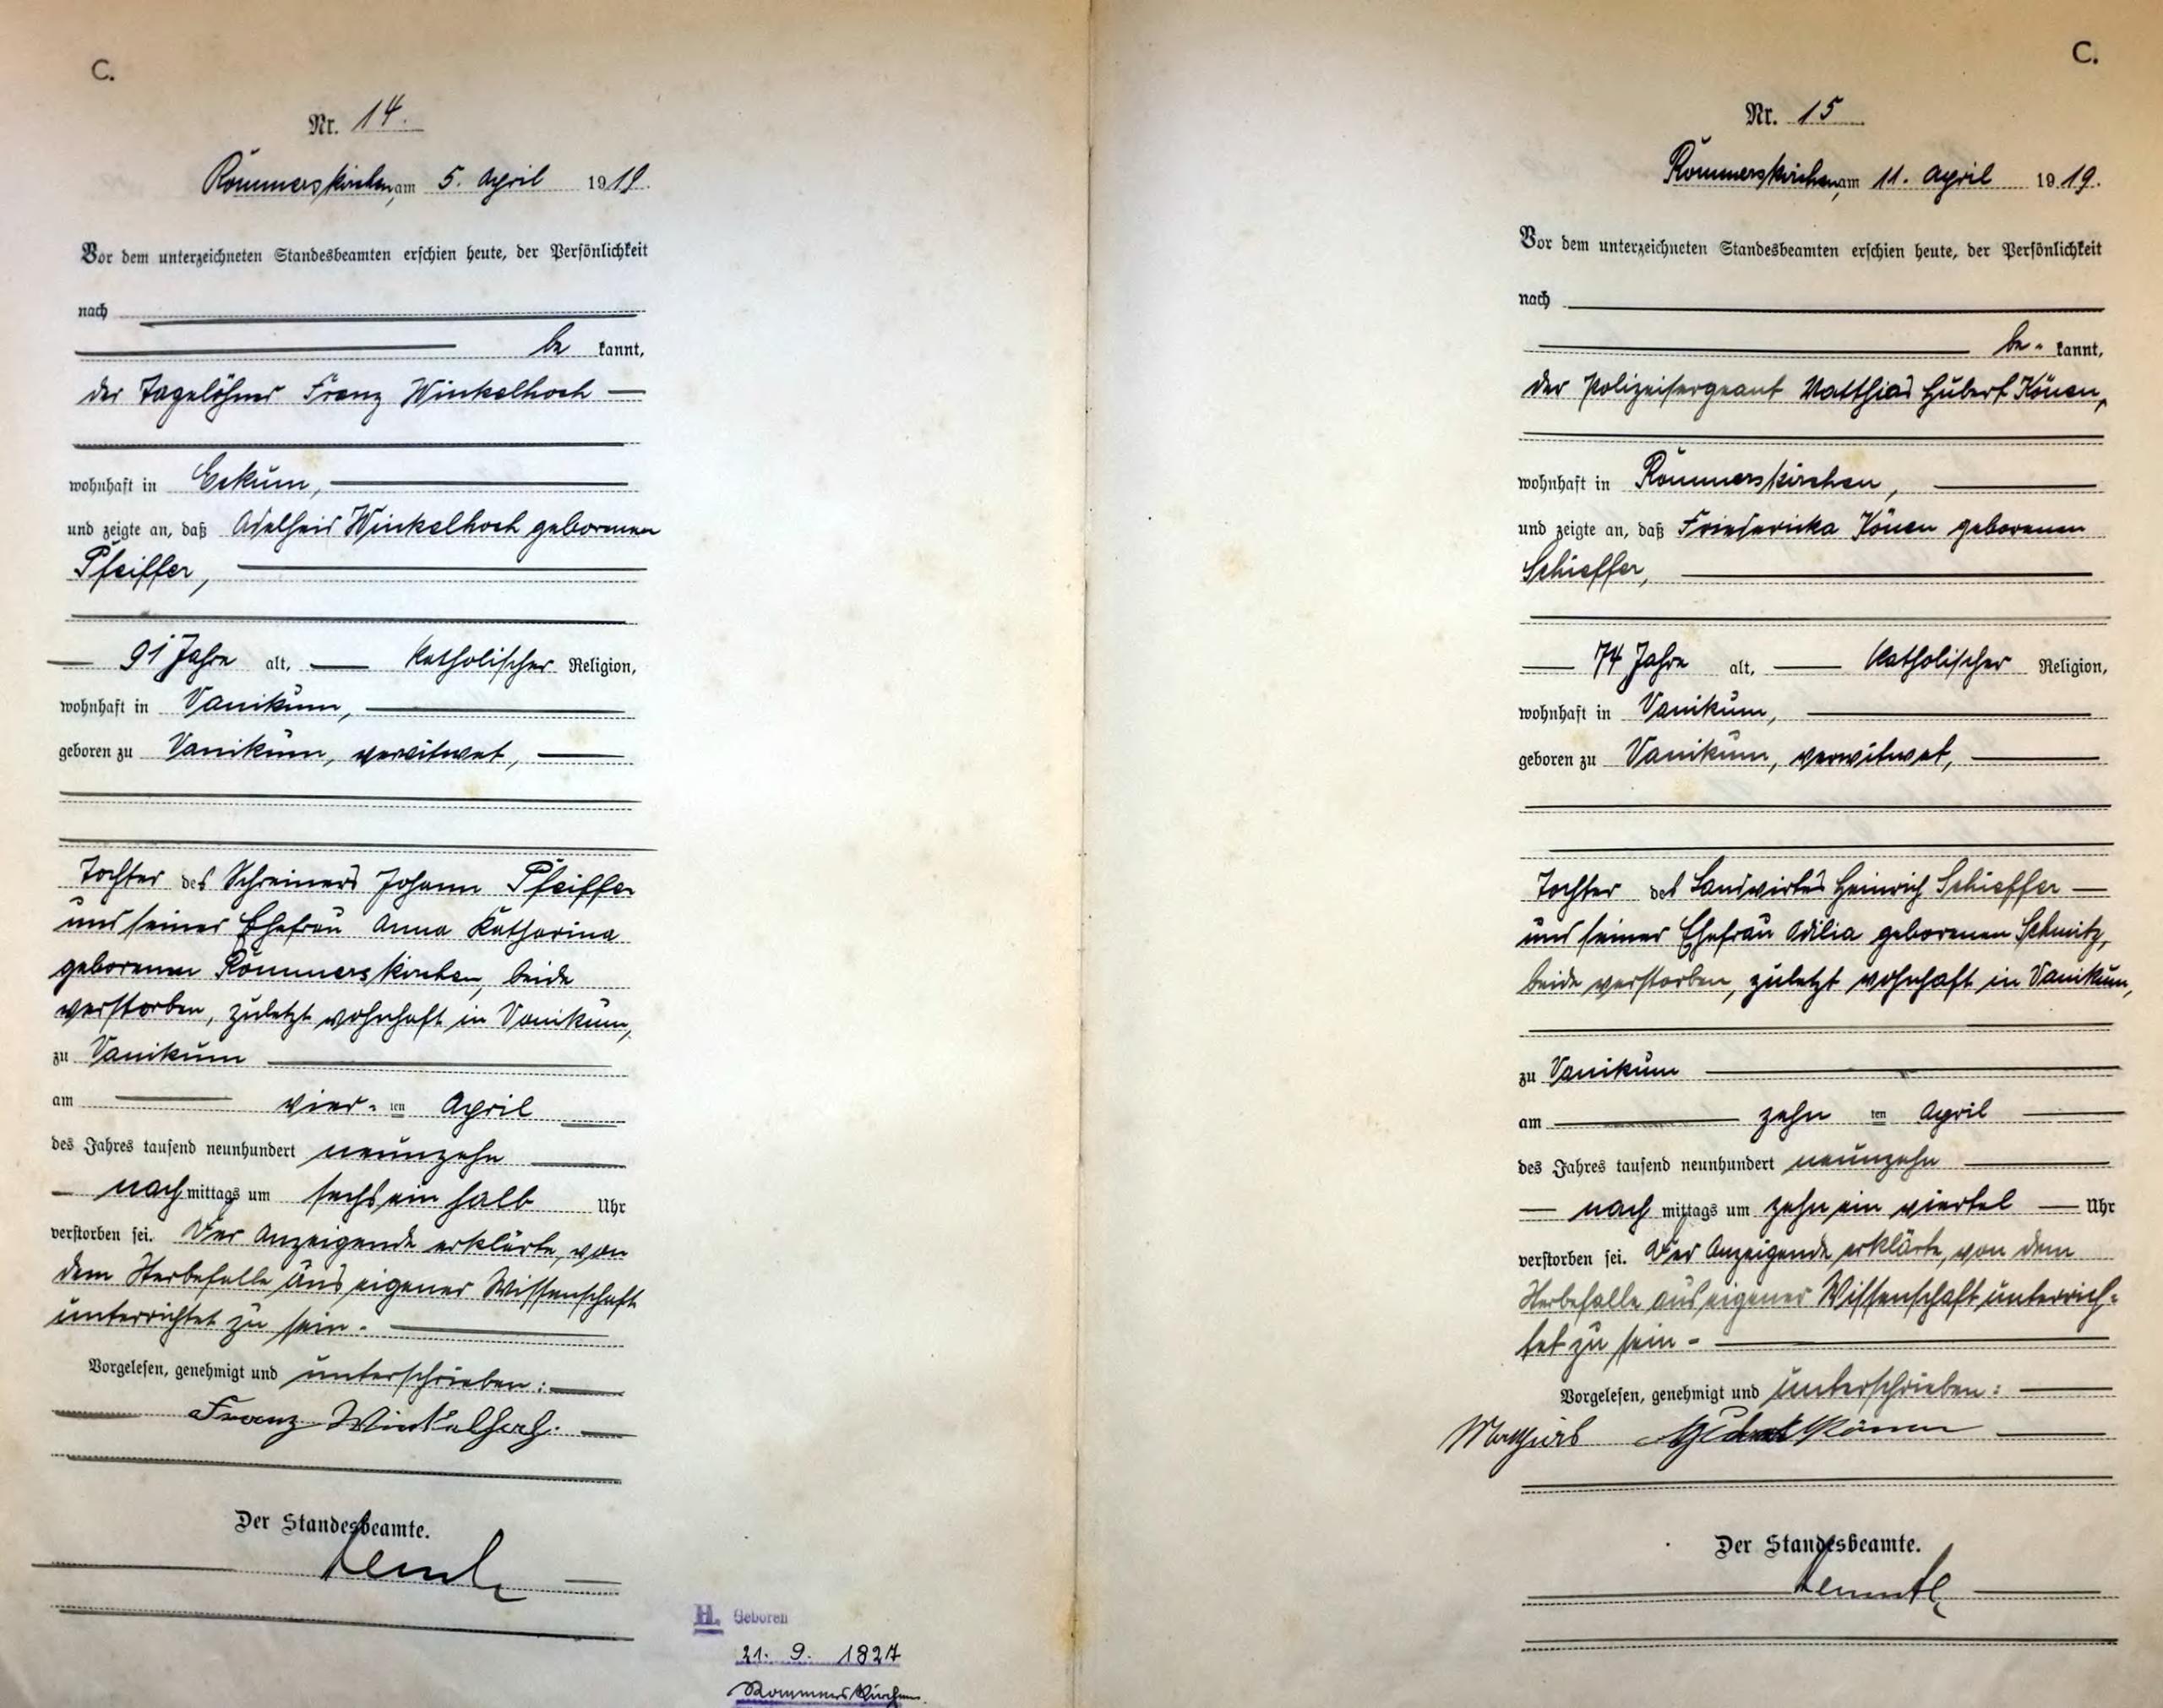 C.
Nr. 14.
Rommerskirchen, am 5. April 1919.
Vor dem unterzeichneten Standesbeamten erschien heute, der Persönlichkeit
nach
be kannt,
der Tagelöhner Franz Winkelhoch
wohnhaft in Eckum,
und zeigte an, daß Adelheid Winkelhoch geborenen
Pfeiffer,
91 Jahre alt, katholischer Religion,
wohnhaft in Vanikum,
geboren zu Vanikum, verwitwet,
Tochter des Schreiners Johann Pfeiffer
und seiner Ehefrau Anna Katharina
geborenen Rommerskirchen, beide
verstorben, zuletzt wohnhaft in Vanikum,
zu Vanikum
am vier-ten April
des Jahres tausend neunhundert neunzehn
nach mittags um sechs ein halb Uhr
verstorben sei. Der Anzeigende erklärte, von
dem Sterbefalle aus eigener Wissenschaft
unterrichtet zu sein.
Vorgelesen, genehmigt und unterschrieben:
Franz Winkelhoch.
Der Standesbeamte.
H. Geboren
21. 9. 1827
Rommerskirchen.
C.
Nr. 15
Rommerskirchen, am 11. April 1919.
Vor dem unterzeichneten Standesbeamten erschien heute, der Persönlichkeit
nach
be- kannt,
der Polizeisergeant Matthias Hubert Könen,
wohnhaft in Rommerskirchen,
und zeigte an, daß Friedericka Könen geborenen
Schieffer,
74 Jahre alt, katholischer Religion,
wohnhaft in Vanikum,
geboren zu Vanikum, verwitwet,
Tochter des Landwirtes Heinrich Schieffer
und seiner Ehefrau Odilia geborenen Schmitz,
beide verstorben, zuletzt wohnhaft in Vanikum,
zu Vanikum
am zehn ten April
des Jahres tausend neunhundert neunzehn
nach mittags um zehn ein viertel Uhr
verstorben sei. Der Anzeigende erklärte, von dem
Sterbefalle aus eigener Wissenschaft unterrich-
tet zu sein.
Vorgelesen, genehmigt und unterschrieben:
Mathias Hubert Könen
Der Standesbeamte.